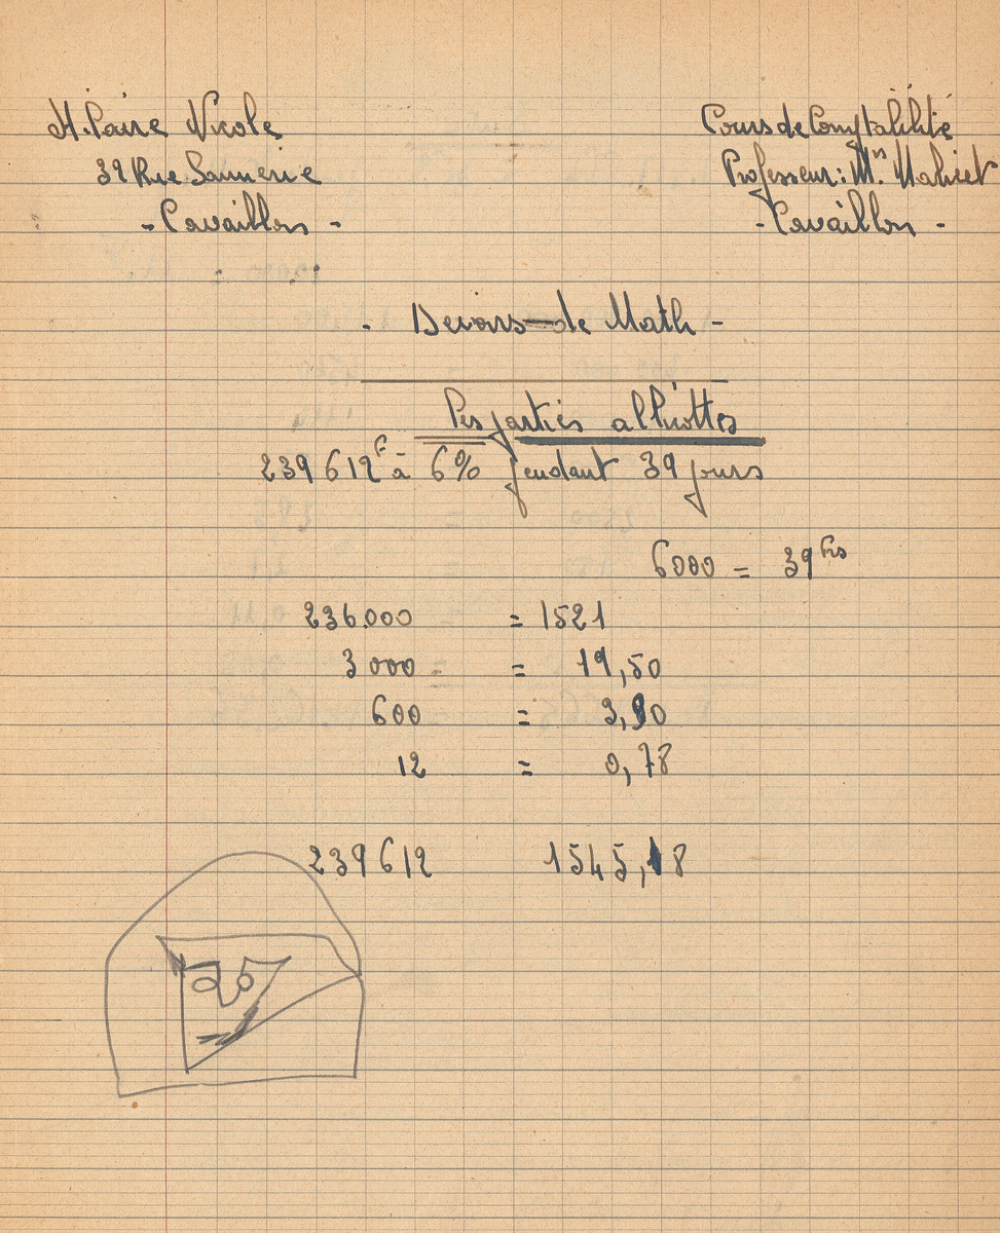 H.Paire Nicole
39 Rue Saunerie
- Cavaillon -
Cours de Comptabilité
Professeur: Mr.
- Cavaillon -
- Devoirs de Math -
Des parties
239 612 F à 6% pendant 39 jours
6000 = 39 Frs
236.000 = 1521
3 000 = 19,50
600 = 3,90
12 = 0,78
239 612 1545,18